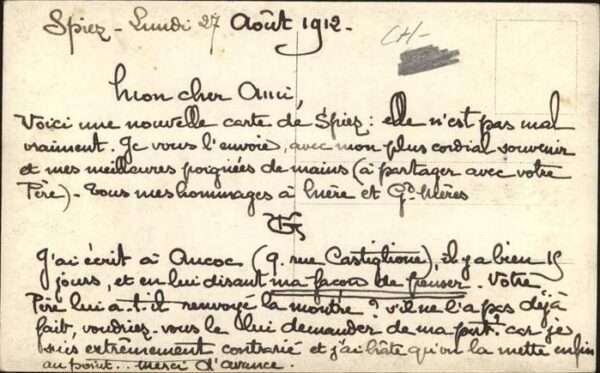 Spiez - Lundi 27 Août 1912 -
CH-
Mon cher Ami,
Voici une nouvelle carte de Spiez : elle n'est pas mal
vraiment. Je vous l'envoie, avec mon plus cordial souvenir
et mes meilleures poignées de mains (à partager avec votre
Père) - Tous mes hommages à Mère et Gd. Mères
J'ai écrit à Aucoc (9. rue Castiglione), il y a bien 15
jours, et en lui disant ma façon de penser. Votre
Père lui a-t-il renvoyé la montre ? s'il ne l'a pas déjà
fait, voudriez-vous le lui demander de ma part. car je
suis extrêmement contrarié et j'ai hâte qu'on la mette enfin
au point... merci d'avance.